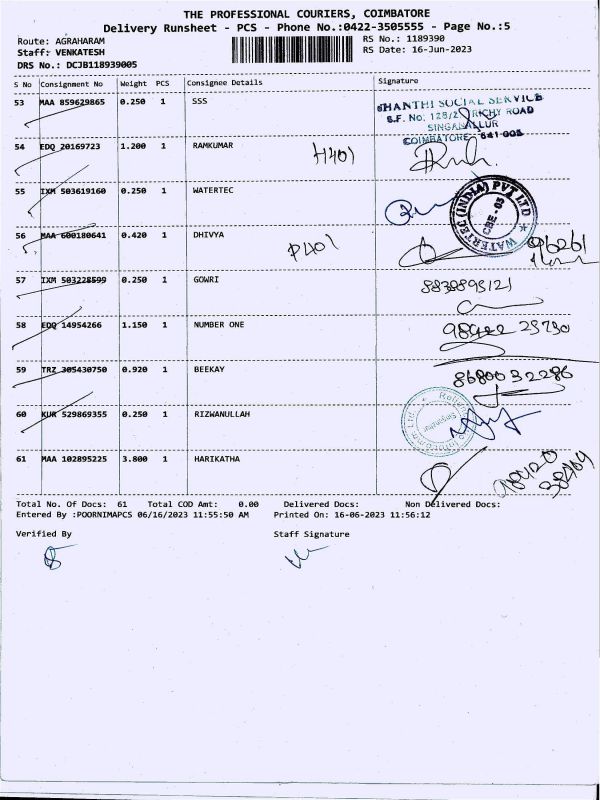 THE PROFESSIONAL COURIERS, COIMBATORE
Delivery Runsheet - PCS - Phone No.:0422-3505555 - Page No.:5
Route: AGRAHARAM RS No.: 1189390
Staff: VENKATESH RS Date: 16-Jun-2023
DRS No.: DCJB118939005
S No Consignment No Weight PCS Consignee Details Signature
53 MAA 859629865 0.250 1 SSS
SHANTHI SOCIAL SERVICE
S.F. No: 128/2 TRICHY ROAD
SINGANALLUR
COIMBATORE - 641-005
54 EDQ 20169723 1.200 1 RAMKUMAR H401
55 IXM 503619160 0.250 1 WATERTEC
WATERTEC (INDIA) PVT LTD
CBE-05
56 MAA 600180641 0.420 1 DHIVYA P401 96261
57 IXM 503228599 0.250 1 GOWRI 8838895121
58 EDQ 14954266 1.150 1 NUMBER ONE
59 TRZ 305430750 0.920 1 BEEKAY 8680032286
60 KUR 529869355 0.250 1 RIZWANULLAH
61 MAA 102895225 3.800 1 HARIKATHA
Total No. Of Docs: 61 Total COD Amt: 0.00 Delivered Docs: Non Delivered Docs:
Entered By :POORNIMAPCS 06/16/2023 11:55:50 AM Printed On: 16-06-2023 11:56:12
Verified By Staff Signature